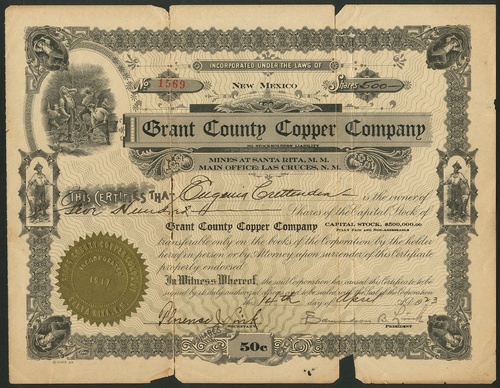 INCORPORATED UNDER THE LAWS OF
NEW MEXICO
No 1569
Shares 500
Grant County Copper Company
NO STOCKHOLDERS LIABILITY
MINES AT SANTA RITA, N. M.
MAIN OFFICE: LAS CRUCES, N. M.
THIS CERTIFIES THAT Eugenia Crittenden is the owner of
Five Hundred Shares of the Capital Stock of
Grant County Copper Company CAPITAL STOCK, $500,000.00
FULLY PAID AND NON-ASSESSABLE
transferable only on the books of the Corporation by the holder
hereof in person or by Attorney upon surrender of this Certificate
properly endorsed
In Witness Whereof, the said Corporation has caused this Certificate to be
signed by its duly authorized officers and to be sealed with the Seal of the Corporation
this 14th day of April 1923
SECRETARY
PRESIDENT
50c